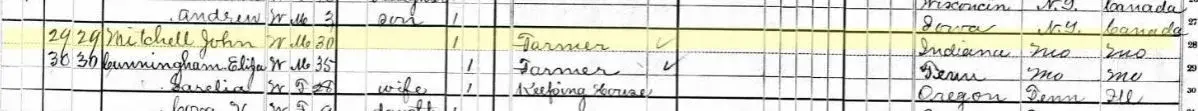 Wisconsin N.Y. Canada
Andrew W M 3 son 1 Iowa N.Y. Canada 27
29 29 Mitchell John W M 30 1 Farmer ✓ Indiana Mo Mo 28
30 30 Cunningham Eliza W M 35 1 Farmer ✓ Tenn Mo Mo 29
W F 28 wife 1 Keeping House Oregon Tenn Ill 30